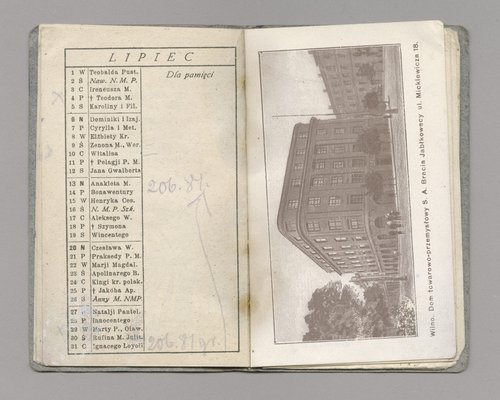 LIPIEC
Dla pamięci
1 W Teobalda Pust.
2 Ś Naw. N. M. P.
3 C Ireneusza M.
4 P † Teodora M.
5 S Karoliny i Fil.
6 N Dominiki i Izaj.
7 P Cyrylla i Met.
8 W Elżbiety Kr.
9 Ś Zenona M., Wer.
10 C Witalisa
11 P † Pelagji P. M.
12 S Jana Gwalberta
13 N Anakleta M.
14 P Bonawentury
15 W Henryka Ces.
16 Ś N. M. P. Szk.
17 C Aleksego W.
18 P † Szymona
19 S Wincentego
20 N Czesława W.
21 P Praksedy P. M.
22 W Marji Magdal.
23 Ś Apolinarego B.
24 C Kingi kr. polsk.
25 P † Jakóba Ap.
26 S Anny M. NMP.
27 N Natalji Pantol.
28 P Innocentego
29 W Marty P., Olaw.
30 Ś Rufina M. Julit.
31 C Ignacego Loyoli
Wilno. Dom towarowo-przemysłowy S. A. Bracia Jabłkowscy ul. Mickiewicza 18.